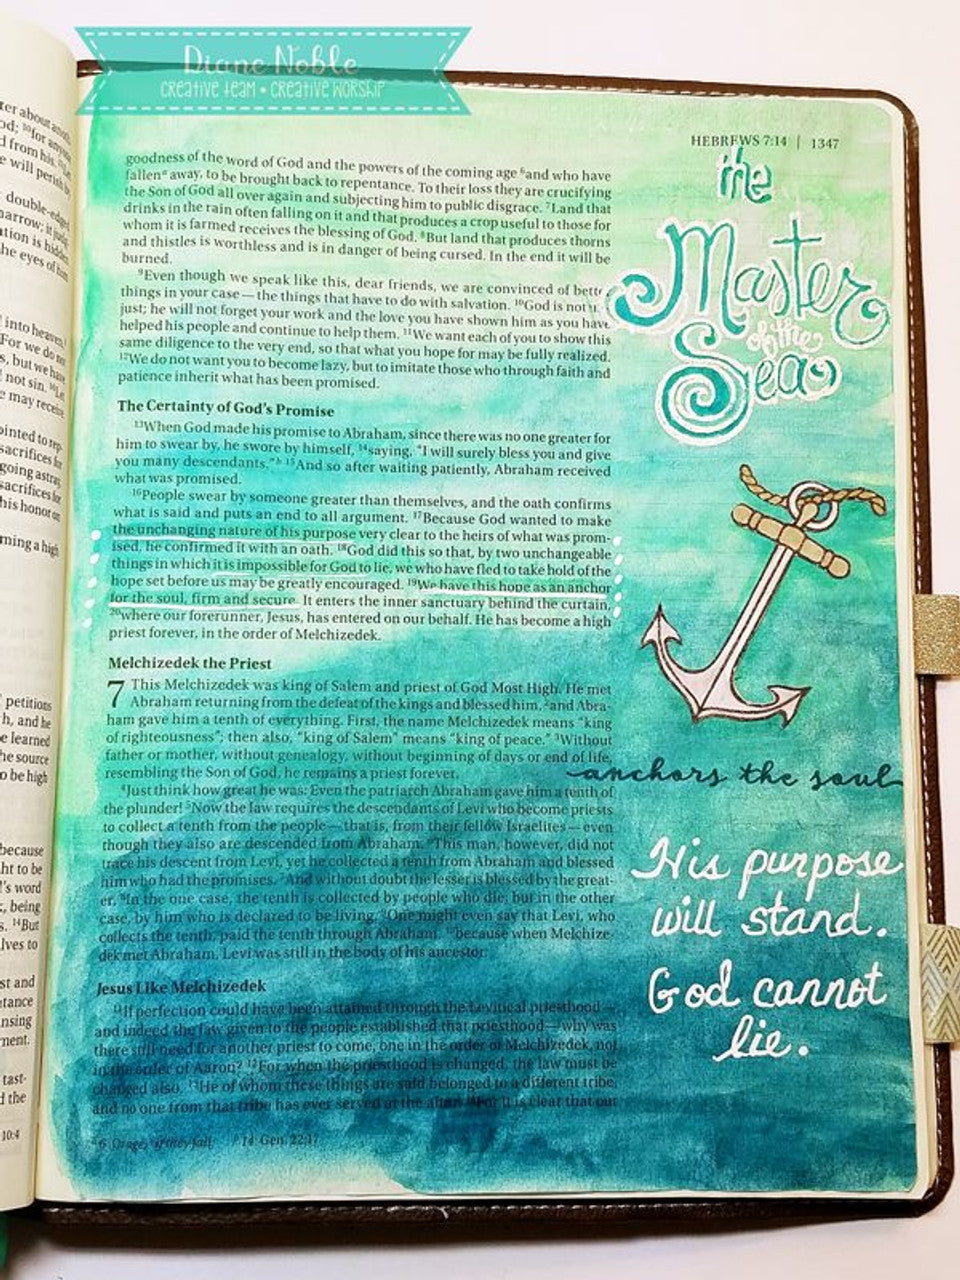 Diane Noble
CREATIVE TEAM • CREATIVE WORSHIP
HEBREWS 7:14 | 1347
goodness of the word of God and the powers of the coming age ⁶and who have
fallenᵃ away, to be brought back to repentance. To their loss they are crucifying
the Son of God all over again and subjecting him to public disgrace. ⁷Land that
drinks in the rain often falling on it and that produces a crop useful to those for
whom it is farmed receives the blessing of God. ⁸But land that produces thorns
and thistles is worthless and is in danger of being cursed. In the end it will be
burned.
⁹Even though we speak like this, dear friends, we are convinced of
things in your case—the things that have to do with salvation. ¹⁰God is not
just; he will not forget your work and the love you have shown him as you have
helped his people and continue to help them. ¹¹We want each of you to show this
same diligence to the very end, so that what you hope for may be fully realized.
¹²We do not want you to become lazy, but to imitate those who through faith and
patience inherit what has been promised.
The Certainty of God's Promise
¹³When God made his promise to Abraham, since there was no one greater for
him to swear by, he swore by himself, ¹⁴saying, "I will surely bless you and give
you many descendants."ᵇ ¹⁵And so after waiting patiently, Abraham received
what was promised.
¹⁶People swear by someone greater than themselves, and the oath confirms
what is said and puts an end to all argument. ¹⁷Because God wanted to make
the unchanging nature of his purpose very clear to the heirs of what was prom-
ised, he confirmed it with an oath. ¹⁸God did this so that, by two unchangeable
things in which it is impossible for God to lie, we who have fled to take hold of the
hope set before us may be greatly encouraged. ¹⁹We have this hope as an anchor
for the soul, firm and secure. It enters the inner sanctuary behind the curtain,
²⁰where our forerunner, Jesus, has entered on our behalf. He has become a high
priest forever, in the order of Melchizedek.
Melchizedek the Priest
7 This Melchizedek was king of Salem and priest of God Most High. He met
Abraham returning from the defeat of the kings and blessed him, ²and Abra-
ham gave him a tenth of everything. First, the name Melchizedek means "king
of righteousness"; then also, "king of Salem" means "king of peace." ³Without
father or mother, without genealogy, without beginning of days or end of life,
resembling the Son of God, he remains a priest forever.
⁴Just think how great he was: Even the patriarch Abraham gave him a tenth of
the plunder! ⁵Now the law requires the descendants of Levi who become priests
to collect a tenth from the people—that is, from their fellow Israelites—even
though they also are descended from Abraham. ⁶This man, however, did not
trace his descent from Levi, yet he collected a tenth from Abraham and blessed
him who had the promises. ⁷And without doubt the lesser is blessed by the great-
er. ⁸In the one case, the tenth is collected by people who die; but in the other
case, by him who is declared to be living. ⁹One might even say that Levi, who
collects the tenth, paid the tenth through Abraham, ¹⁰because when Melchize-
dek met Abraham, Levi was still in the body of his ancestor.
Jesus Like Melchizedek
¹¹If perfection could have been attained through the Levitical priesthood—
and indeed the law given to the people established that priesthood—why was
there still need for another priest to come, one in the order of Melchizedek, not
in the order of Aaron? ¹²For when the priesthood is changed, the law must be
changed also. ¹³He of whom these things are said belonged to a different tribe,
and no one from that tribe has ever served at the altar. ¹⁴For it is clear that our
the
Master
of the
Sea
anchors the soul
His purpose
will stand.
God cannot
lie.